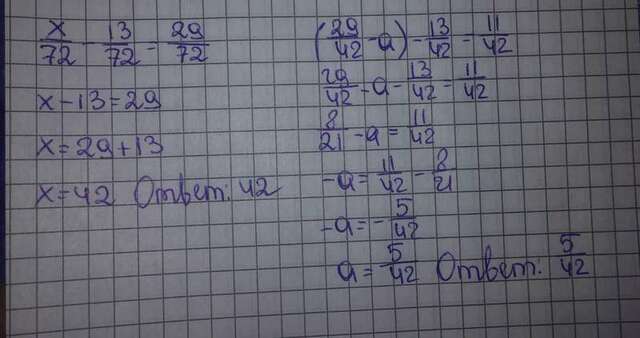 x/72 - 13/72 = 29/72
x - 13 = 29
x = 29 + 13
x = 42 Ответ: 42
(29/42 - a) - 13/42 = 11/42
29/42 - a - 13/42 = 11/42
8/21 - a = 11/42
-a = 11/42 - 8/21
-a = - 5/42
a = 5/42 Ответ: 5/42